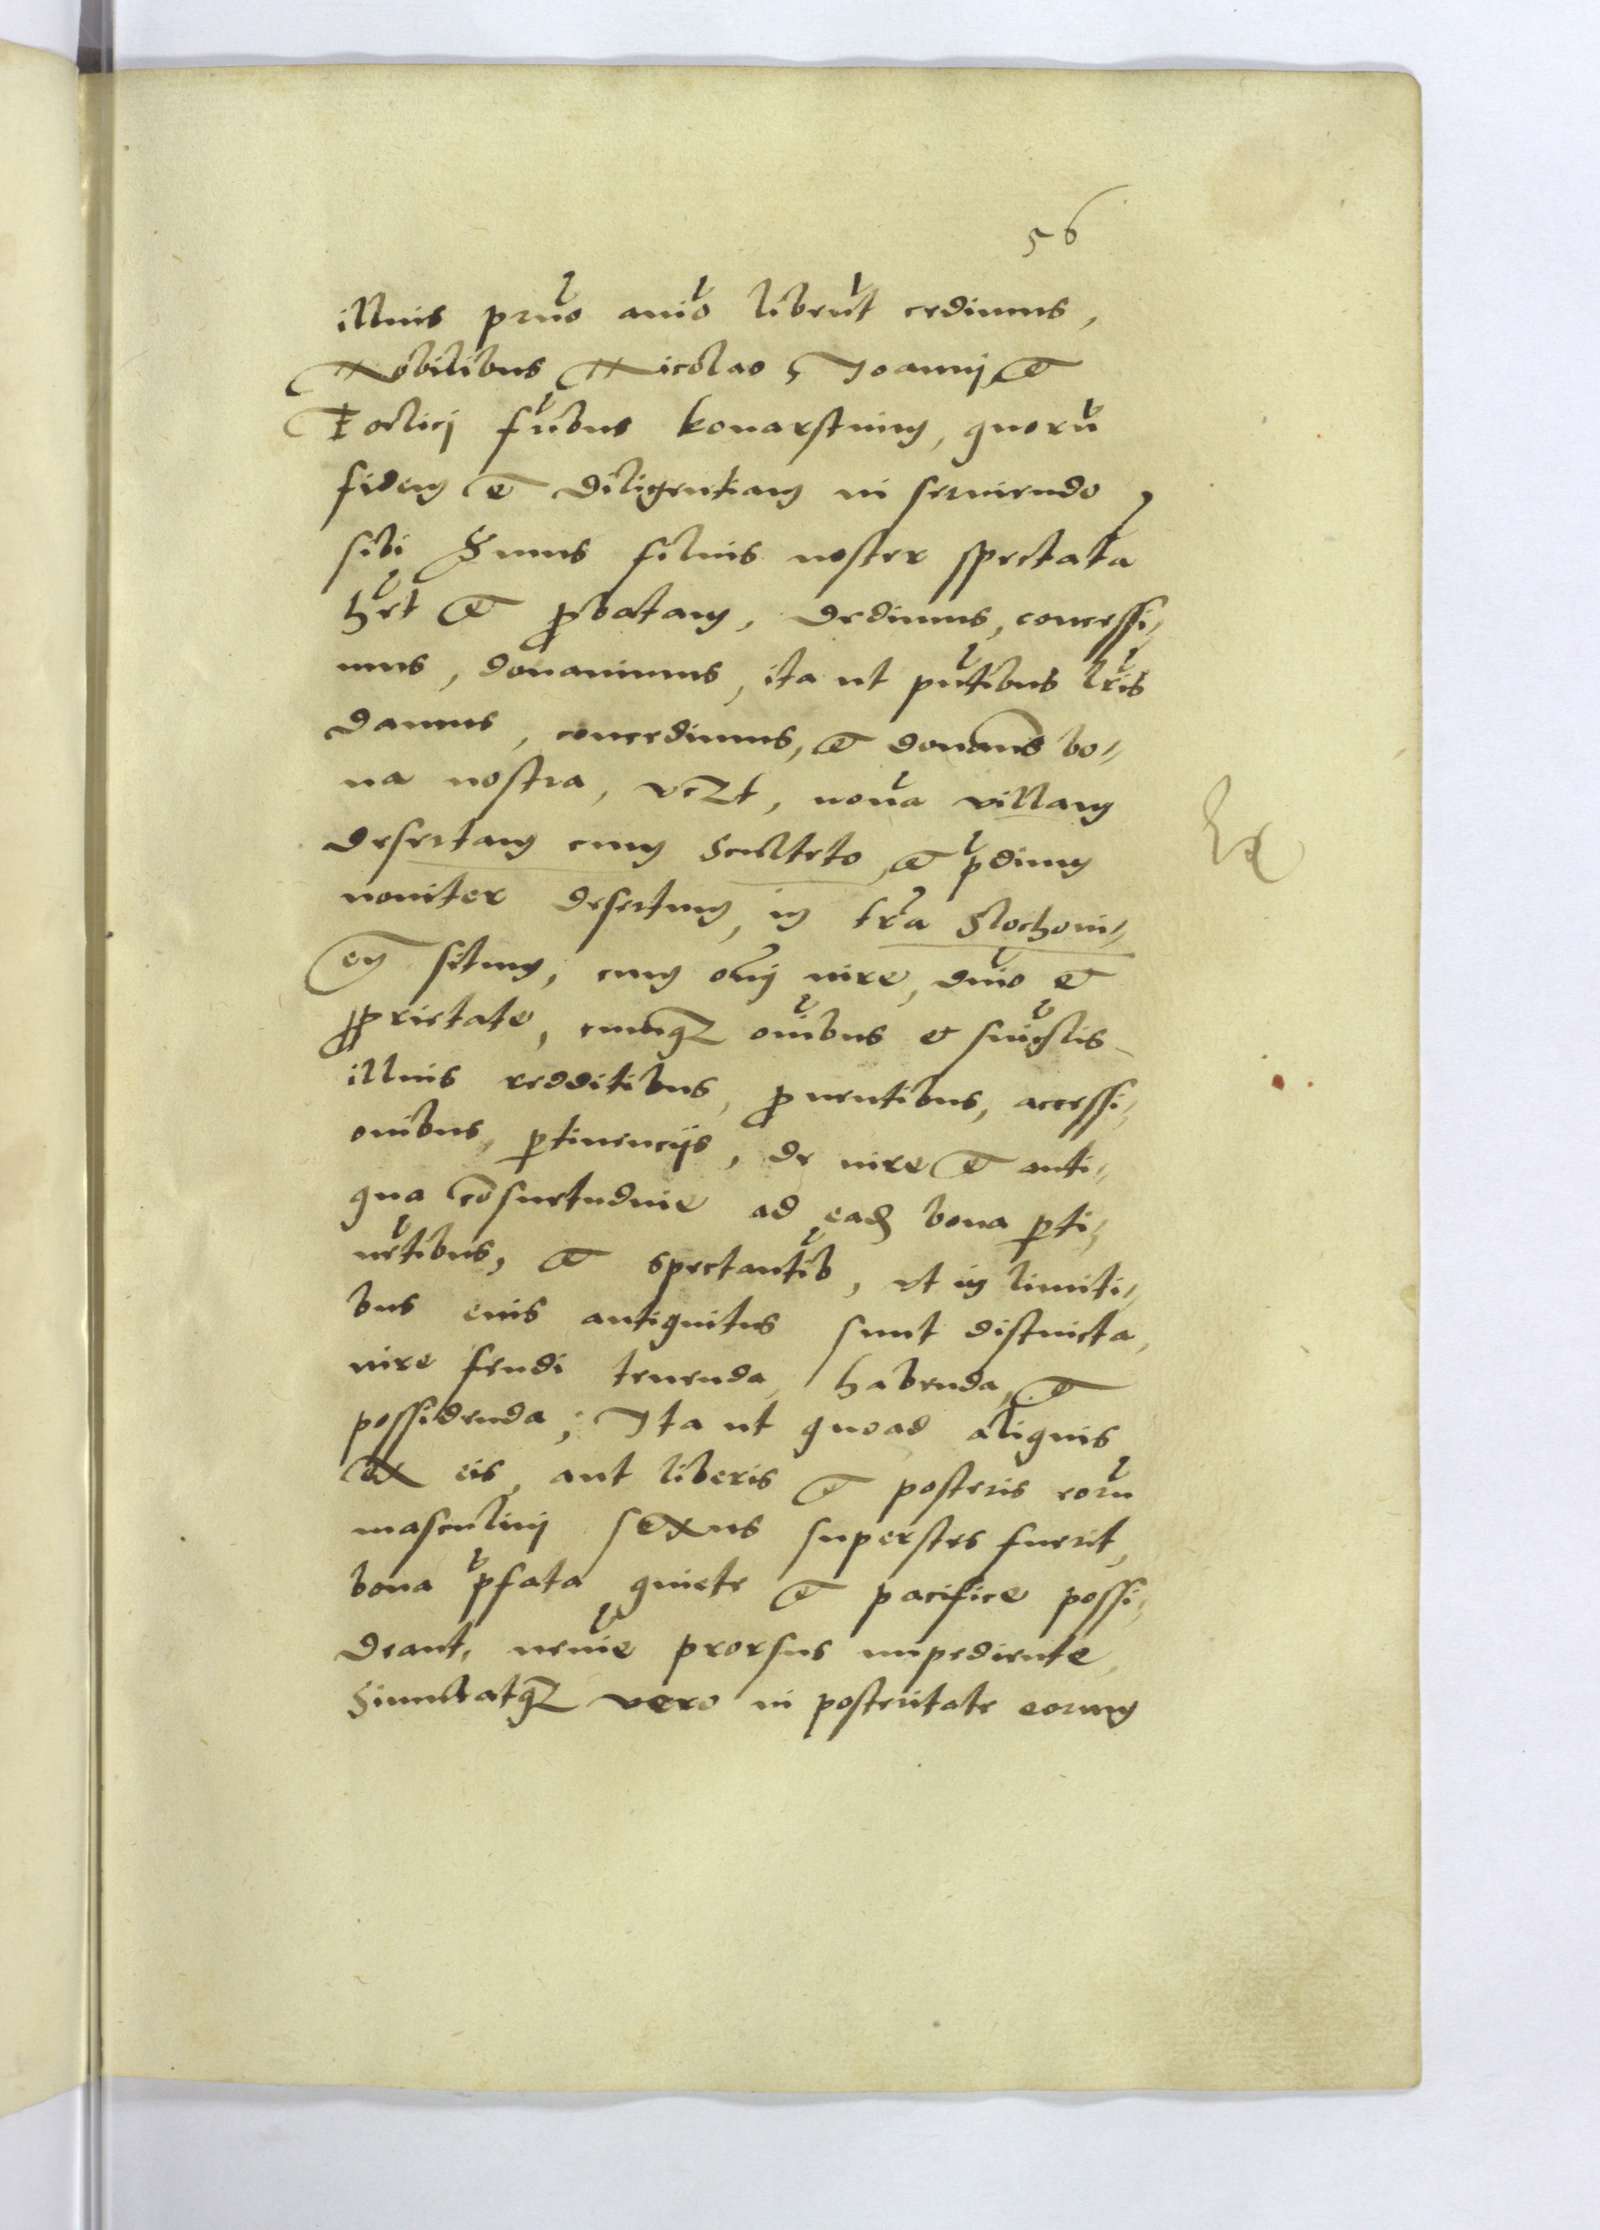 56
illius prũo aĩo libeñt cedimus,
Nobilibus Nicolao, Joannij et
Foelici fr̃ibus Konarstnim, quorũ
fidem et diligentiam in seruiendo
sibi Smus filius noster spectatã
hẽt et probatam, dedimus, concessi,,
mus, donauimus, ita ut pñtibus lr̃is
damus, concedimus, et donam̃s bo,,
na nostra, vczt, nouã villam
desertam cum Sculteto, et p̃dium
nouiter desertum, in tr̃a Slochoui,,
en̄ situm, cum oñi iure, dñio et
proprietate, cumq3 oñibus et singlis
illius redditibus, prouentibus, accessi,,
onibus, pertinencijs, de iure et anti,,
qua cõsuetudine ad ead bona perti,,
nẽtibus, et spectantib, vt in limiti,,
bus euis antiquitus sunt distincta,
iure feudi tenenda, habenda, et
possidenda; Ita ut quoad aliquis
ex eis, aut liberis et posteris eorũ
masculinj sexus superstes fuerit,
bona p̃fata quiete et pacifice possi,,
deant, nemĩe prorsus impediente,
Simulatq3 vero in posteritate eorum